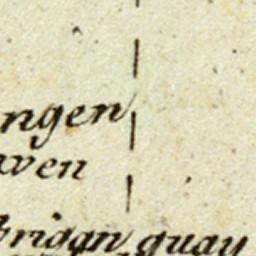 ngen
wen
Brigan quay